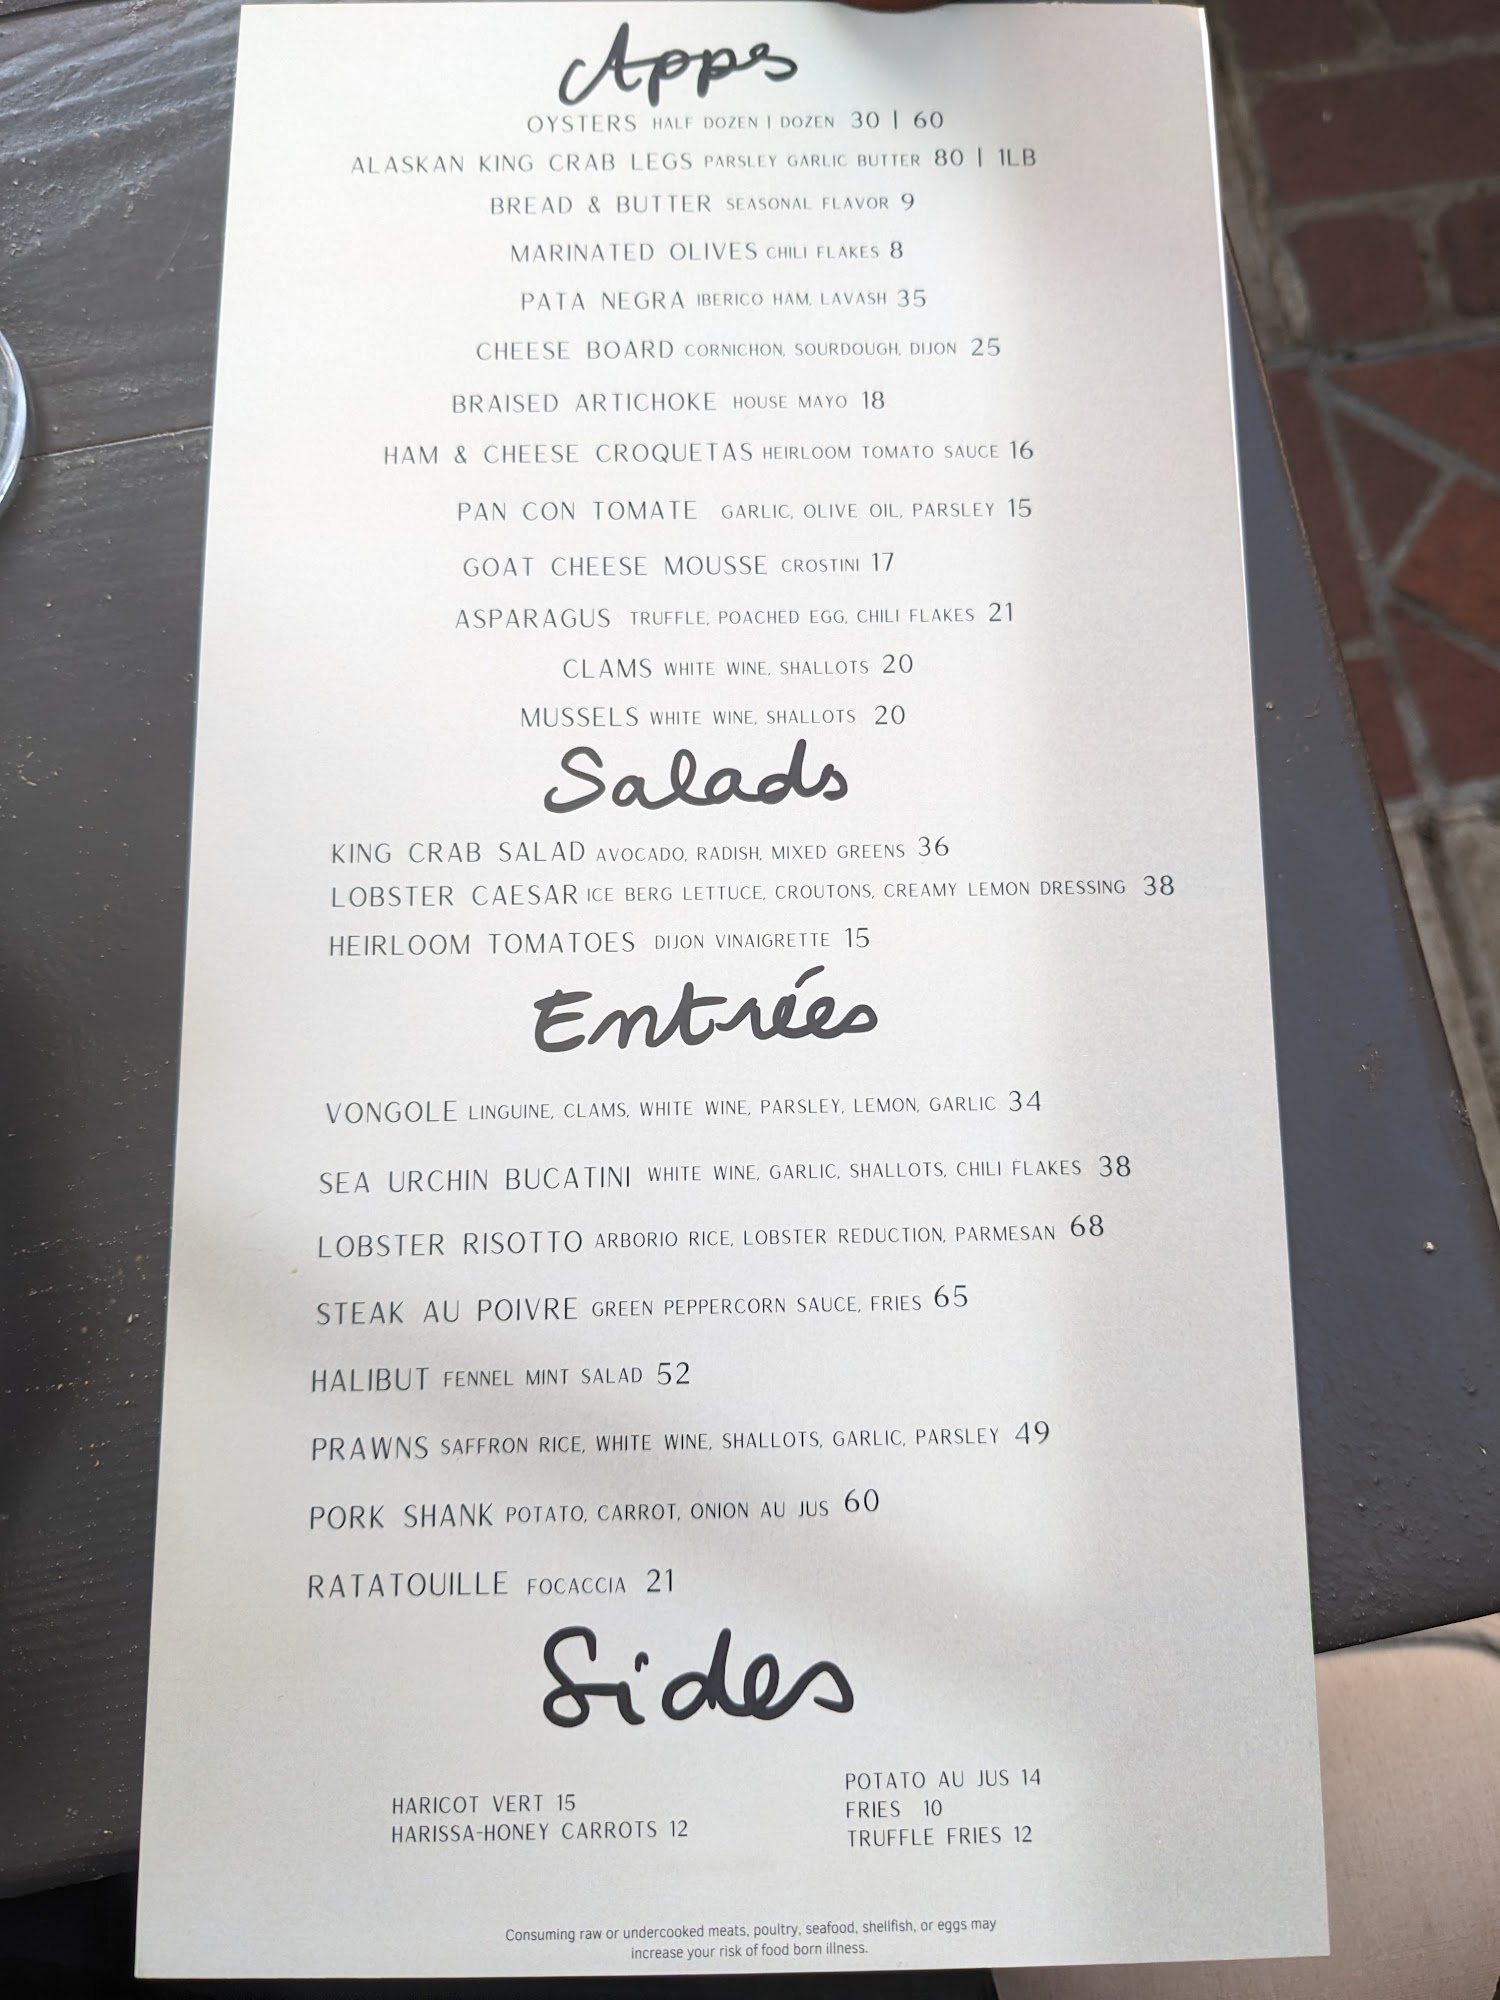 Apps
OYSTERS HALF DOZEN | DOZEN 30 | 60
ALASKAN KING CRAB LEGS PARSLEY GARLIC BUTTER 80 | 1LB
BREAD & BUTTER SEASONAL FLAVOR 9
MARINATED OLIVES CHILI FLAKES 8
PATA NEGRA IBERICO HAM, LAVASH 35
CHEESE BOARD CORNICHON, SOURDOUGH, DIJON 25
BRAISED ARTICHOKE HOUSE MAYO 18
HAM & CHEESE CROQUETAS HEIRLOOM TOMATO SAUCE 16
PAN CON TOMATE GARLIC, OLIVE OIL, PARSLEY 15
GOAT CHEESE MOUSSE CROSTINI 17
ASPARAGUS TRUFFLE, POACHED EGG, CHILI FLAKES 21
CLAMS WHITE WINE, SHALLOTS 20
MUSSELS WHITE WINE, SHALLOTS 20
Salads
KING CRAB SALAD AVOCADO, RADISH, MIXED GREENS 36
LOBSTER CAESAR ICE BERG LETTUCE, CROUTONS, CREAMY LEMON DRESSING 38
HEIRLOOM TOMATOES DIJON VINAIGRETTE 15
Entrées
VONGOLE LINGUINE, CLAMS, WHITE WINE, PARSLEY, LEMON, GARLIC 34
SEA URCHIN BUCATINI WHITE WINE, GARLIC, SHALLOTS, CHILI FLAKES 38
LOBSTER RISOTTO ARBORIO RICE, LOBSTER REDUCTION, PARMESAN 68
STEAK AU POIVRE GREEN PEPPERCORN SAUCE, FRIES 65
HALIBUT FENNEL MINT SALAD 52
PRAWNS SAFFRON RICE, WHITE WINE, SHALLOTS, GARLIC, PARSLEY 49
PORK SHANK POTATO, CARROT, ONION AU JUS 60
RATATOUILLE FOCACCIA 21
Sides
HARICOT VERT 15
HARISSA-HONEY CARROTS 12
POTATO AU JUS 14
FRIES 10
TRUFFLE FRIES 12
Consuming raw or undercooked meats, poultry, seafood, shellfish, or eggs may
increase your risk of food born illness.